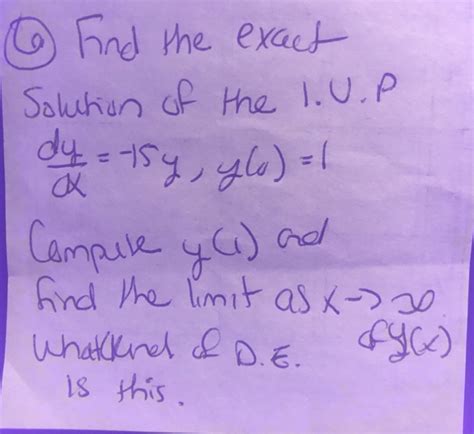 ⑥ Find the exact
Solution of the I.V.P
dy/dx = -15y, y(0) = 1
Compute y(1) and
find the limit as x -> ∞
of y(x)
What kind of D.E.
is this.